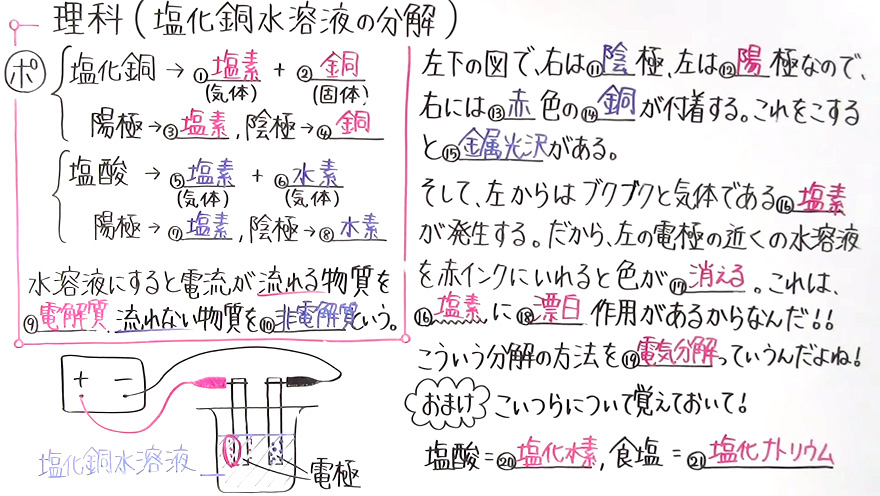 理科(塩化銅水溶液の分解)
ポ
塩化銅 → ①塩素 + ②銅
(気体) (固体)
陽極→③塩素, 陰極→④銅
塩酸 → ⑤塩素 + ⑥水素
(気体) (気体)
陽極→⑦塩素, 陰極→⑧水素
水溶液にすると電流が流れる物質を
⑨電解質、流れない物質を⑩非電解質という。
+ −
塩化銅水溶液
電極
左下の図で、右は⑪陰極、左は⑫陽極なので、
右には⑬赤色の⑭銅が付着する。これをこする
と⑮金属光沢がある。
そして、左からはブクブクと気体である⑯塩素
が発生する。だから、左の電極の近くの水溶液
を赤インクにいれると色が⑰消える。これは、
⑯塩素に⑱漂白作用があるからなんだ!!
こういう分解の方法を⑲電気分解っていうんだよね!
おまけ こいつらについて覚えておいて!
塩酸=⑳塩化水素, 食塩=㉑塩化ナトリウム